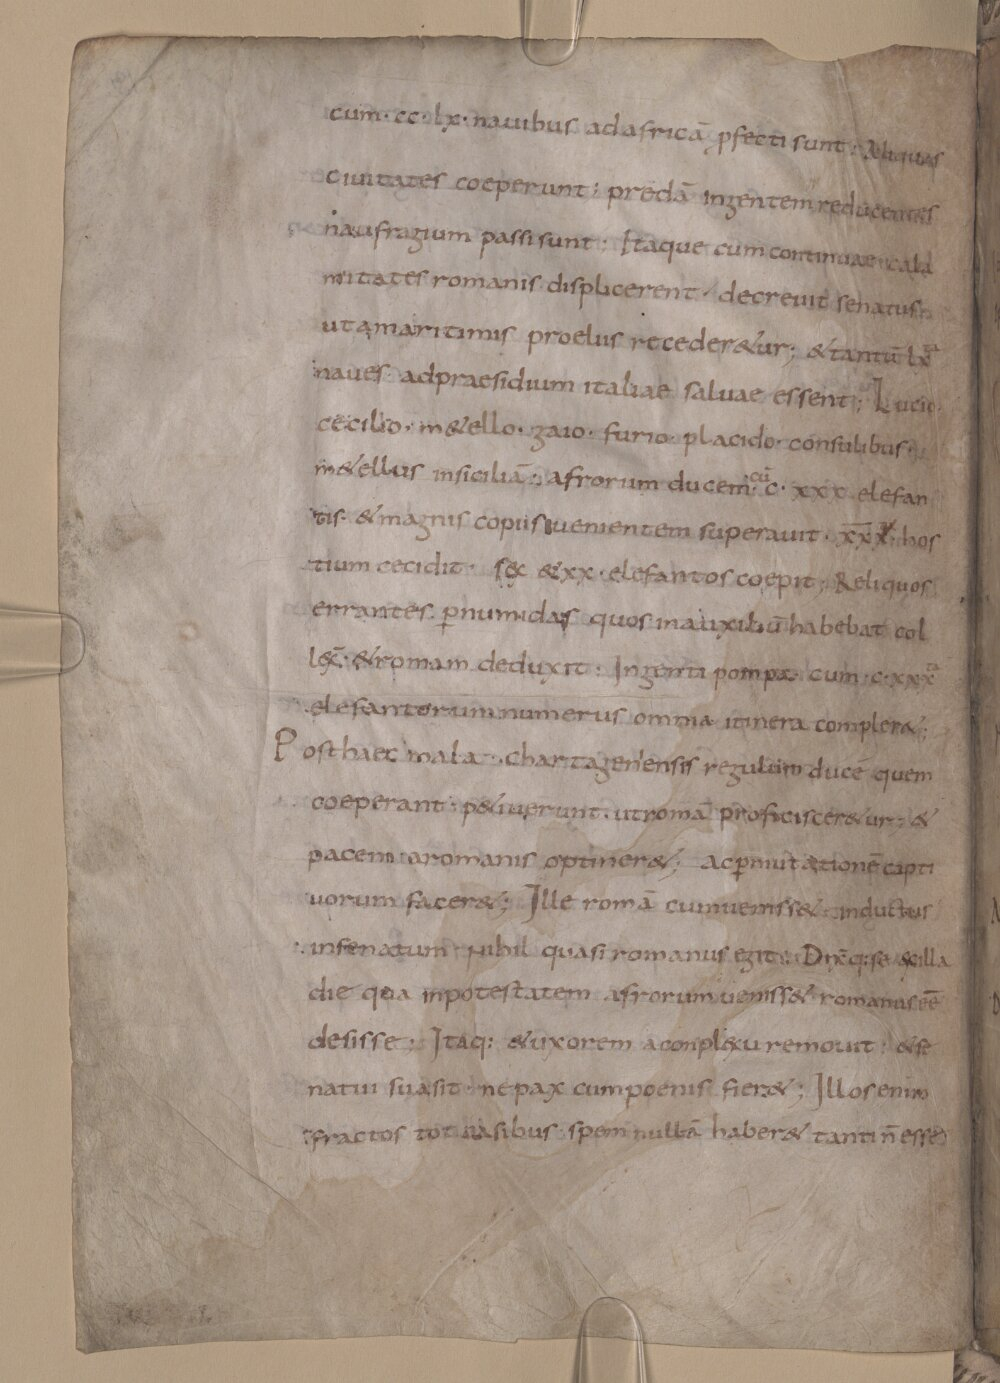 cum · cc · lx · nauibus ad africā ꝓfecti sunt · Aliquas
ciuitates coeperunt ; predā ingentem reducentes
naufragium passi sunt ; Itaque cum continuae cala
mitates romanis displicerent · decreuit senatus
ut a maritimis proeliis receder&ur ; & tantū lx ta
naues ad praesidium italiae saluae essent ; Lucio
cecilio · m&ello · gaio · furio · placido · consulibus ·
m&ellus in siciliā · afrorum ducem · cū c · xxx elefan
tis · & magnis copiis uenientem superauit · xxx hos
tium cecidit · sex & xx · elefantos coepit ; Reliquos
errantes ꝑ numidas quos in auxiliū habebat col
lec̄ · & romam deduxit · Ingenti pompa · cum · c · xxx ta
elefantorum numerus omnia itinera complere& ;
Post haec mala · chartagenensis regulum ducē quem
coeperant · p&iuerunt · ut romā proficiscer&ur ; &
pacem a romanis optiner& ; ac ꝑmutationē capti
uorum facer& ; Ille romā cum ueniss& inductus
in senatum nihil quasi romanus egit · Dix̄q: se ex illa
die qua in potestatem afrorum ueniss& romanus eē
desisse · Itaq: & uxorem a conplexu remouit · & se
natui suasit · ne pax cum poenis fier& ; Illos enim
fractos tot casibus · spem nullā haber& tanti n̄ esse